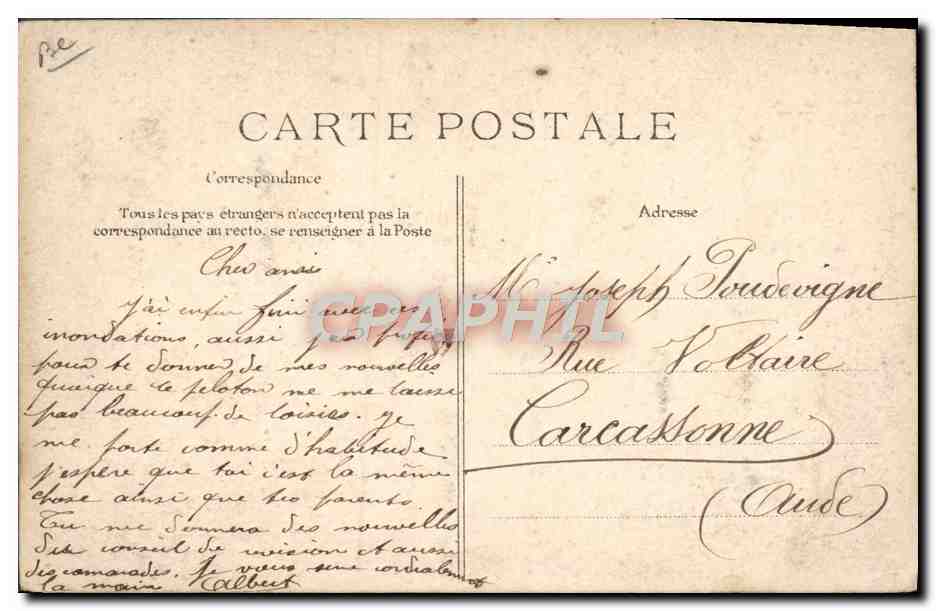 Be
CARTE POSTALE
Correspondance
Tous les pays étrangers n'acceptent pas la
correspondance au recto. se renseigner à la Poste
Cher ami
J'ai enfin fini avec les
inondations, aussi j'en profite
pour te donner de mes nouvelles
quoique le peloton ne me laisse
pas beaucoup de loisirs. Je
me porte comme d'habitude
j'espère que toi c'est la même
chose ainsi que tes parents
Tu me donnera des nouvelles
du conseil de revision et aussi
des camarades. Je vous serre cordialement
la main Albert
Adresse
Mr Joseph Poudevigne
Rue Voltaire
Carcassonne
(Aude)
CPAPHIL